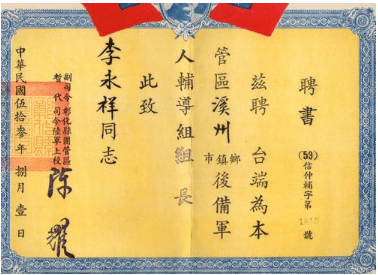 聘書
(53)信仲輔字第 號
茲聘 台端為本
管區溪州鄉鎮市後備軍
人輔導組組長
此致
李永祥同志
副司令彰化縣團管區
暫代司令陸軍上校陳
中華民國伍拾叁年捌月壹日